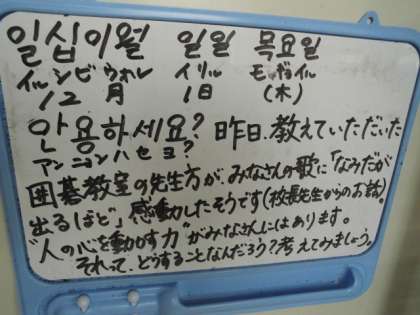 일십이월 일일 목요일
イルシビウォル イリル モッヨイル
12月 1日 (木)
안용하세요? 昨日、教えていただいた
アンニョンハセヨ?
囲碁教室の先生方が、みなさんの歌に「なみだが
出るほど」感動したそうです(校長先生からのお話)。
"人の心を動かす力"がみなさんにはあります。
それって、どうすることなんだろう?考えてみましょう。